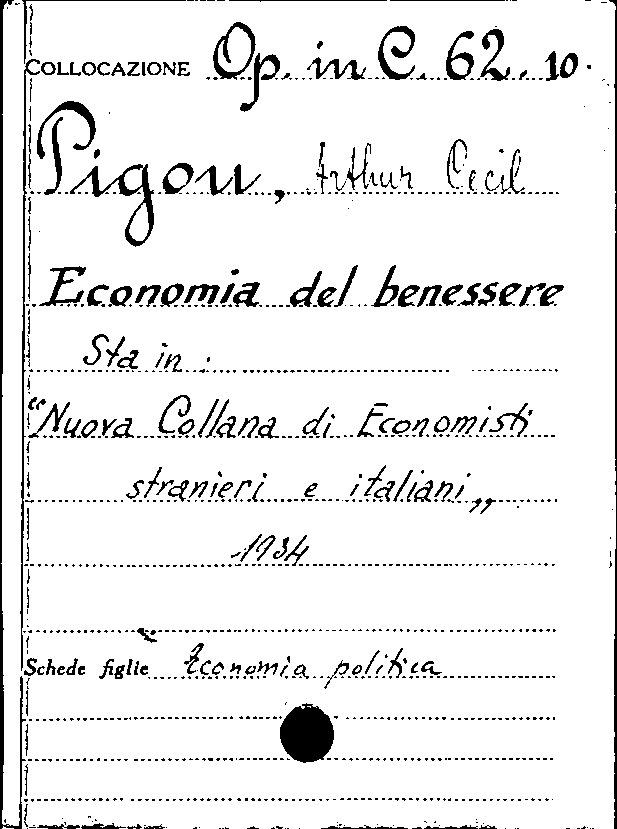 COLLOCAZIONE Op. in C. 62. 10.
Pigou, Arthur Cecil
Economia del benessere
Sta in :
"Nuova Collana di Economisti
stranieri e italiani„
1934
Schede figlie Economia politica